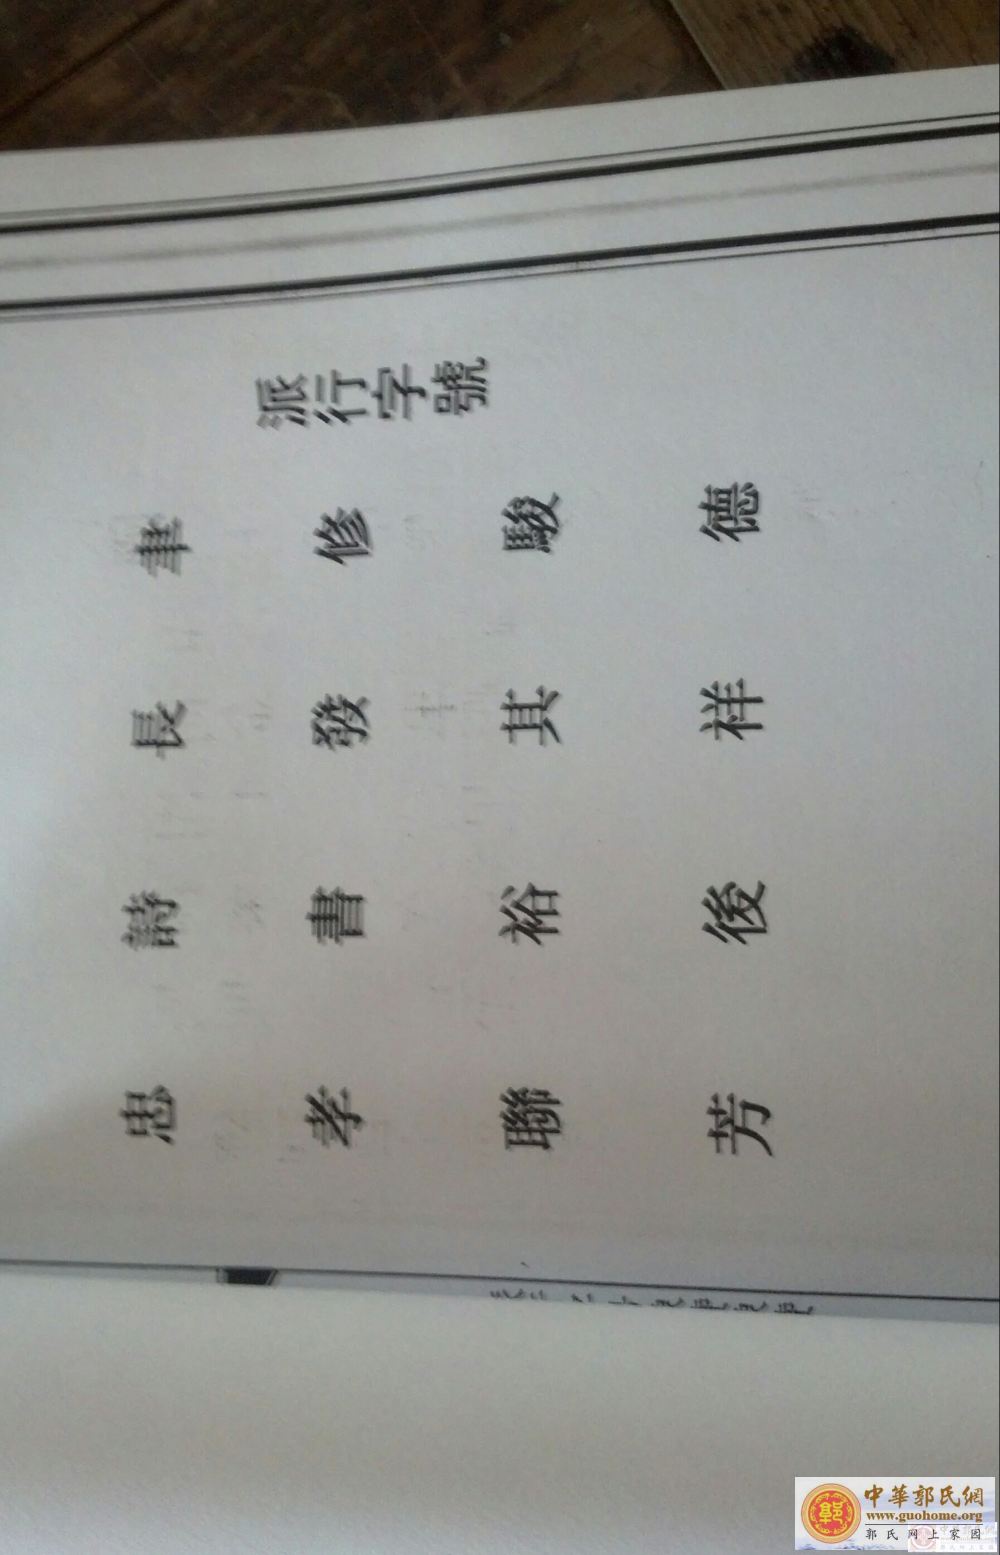 派行字號
聿修駿德
長發其祥
詩書裕後
忠孝聯芳
中華郭氏網
www.guohome.org
郭氏网上家园